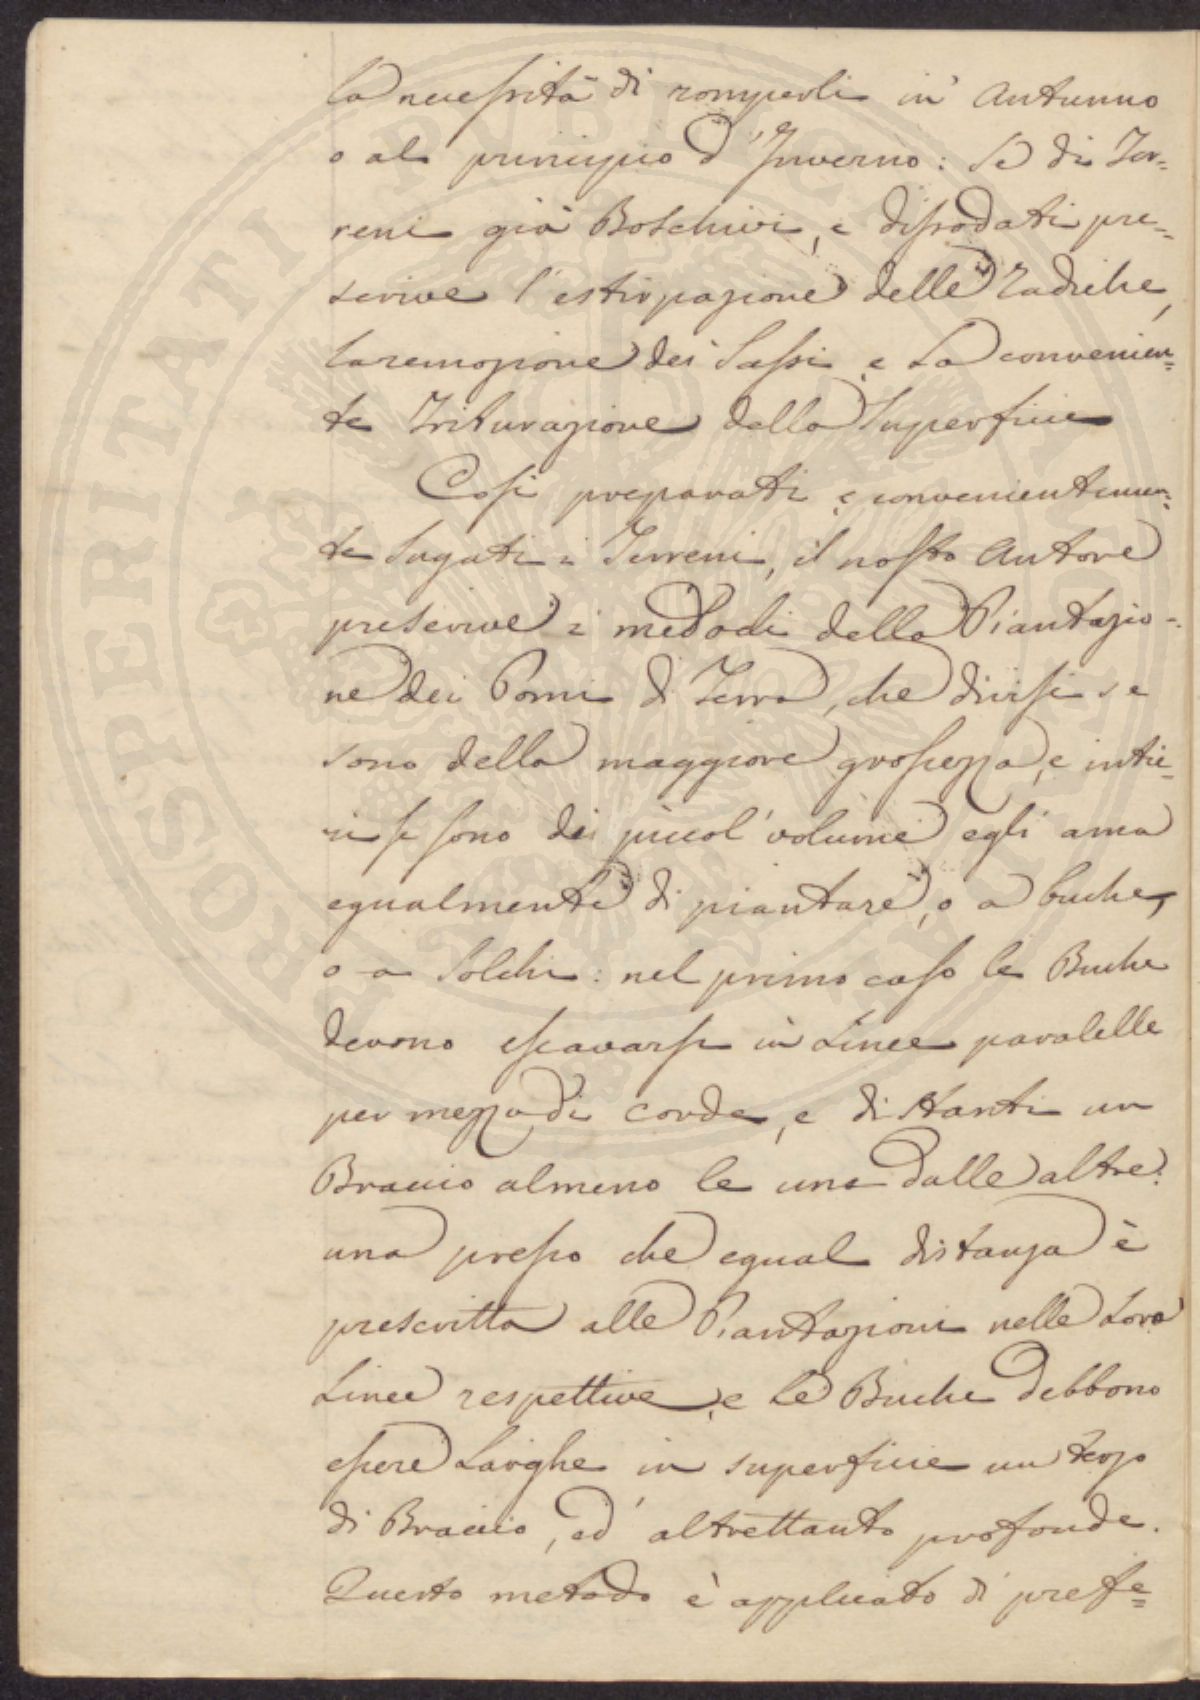 la necessità di romperli in Autunno
o al principio d'Inverno: Se di Ter=
reni già Boschivi, e dissodati pre=
scrive l'estirpazione delle Radiche,
la remozione dei Sassi e la convenien=
te Triturazione della Superficie
Così preparati e convenientemen=
te Sugati i Terreni, il nostro Autore
prescrive i metodi della Piantagio=
ne dei Pomi di Terra, che divisi se
sono della maggiore grossezza, e intie=
ri se sono di piccol' volume egli ama
egualmente di piantare, o a buche,
o a Solchi: nel primo caso le Buche
devono escavarsi in Linee paralelle
per mezzo di corde, e distanti un
Braccio almeno le une dalle altre:
una presso che egual distanza è
prescritta alle Piantagioni nelle Loro
Linee respettive, e le Buche debbono
essere Larghe in superficie un terzo
di Braccio, ed altrettanto profonde.
Questo metodo è applicato di prefe=
PROSPERITATI PUBLICAE